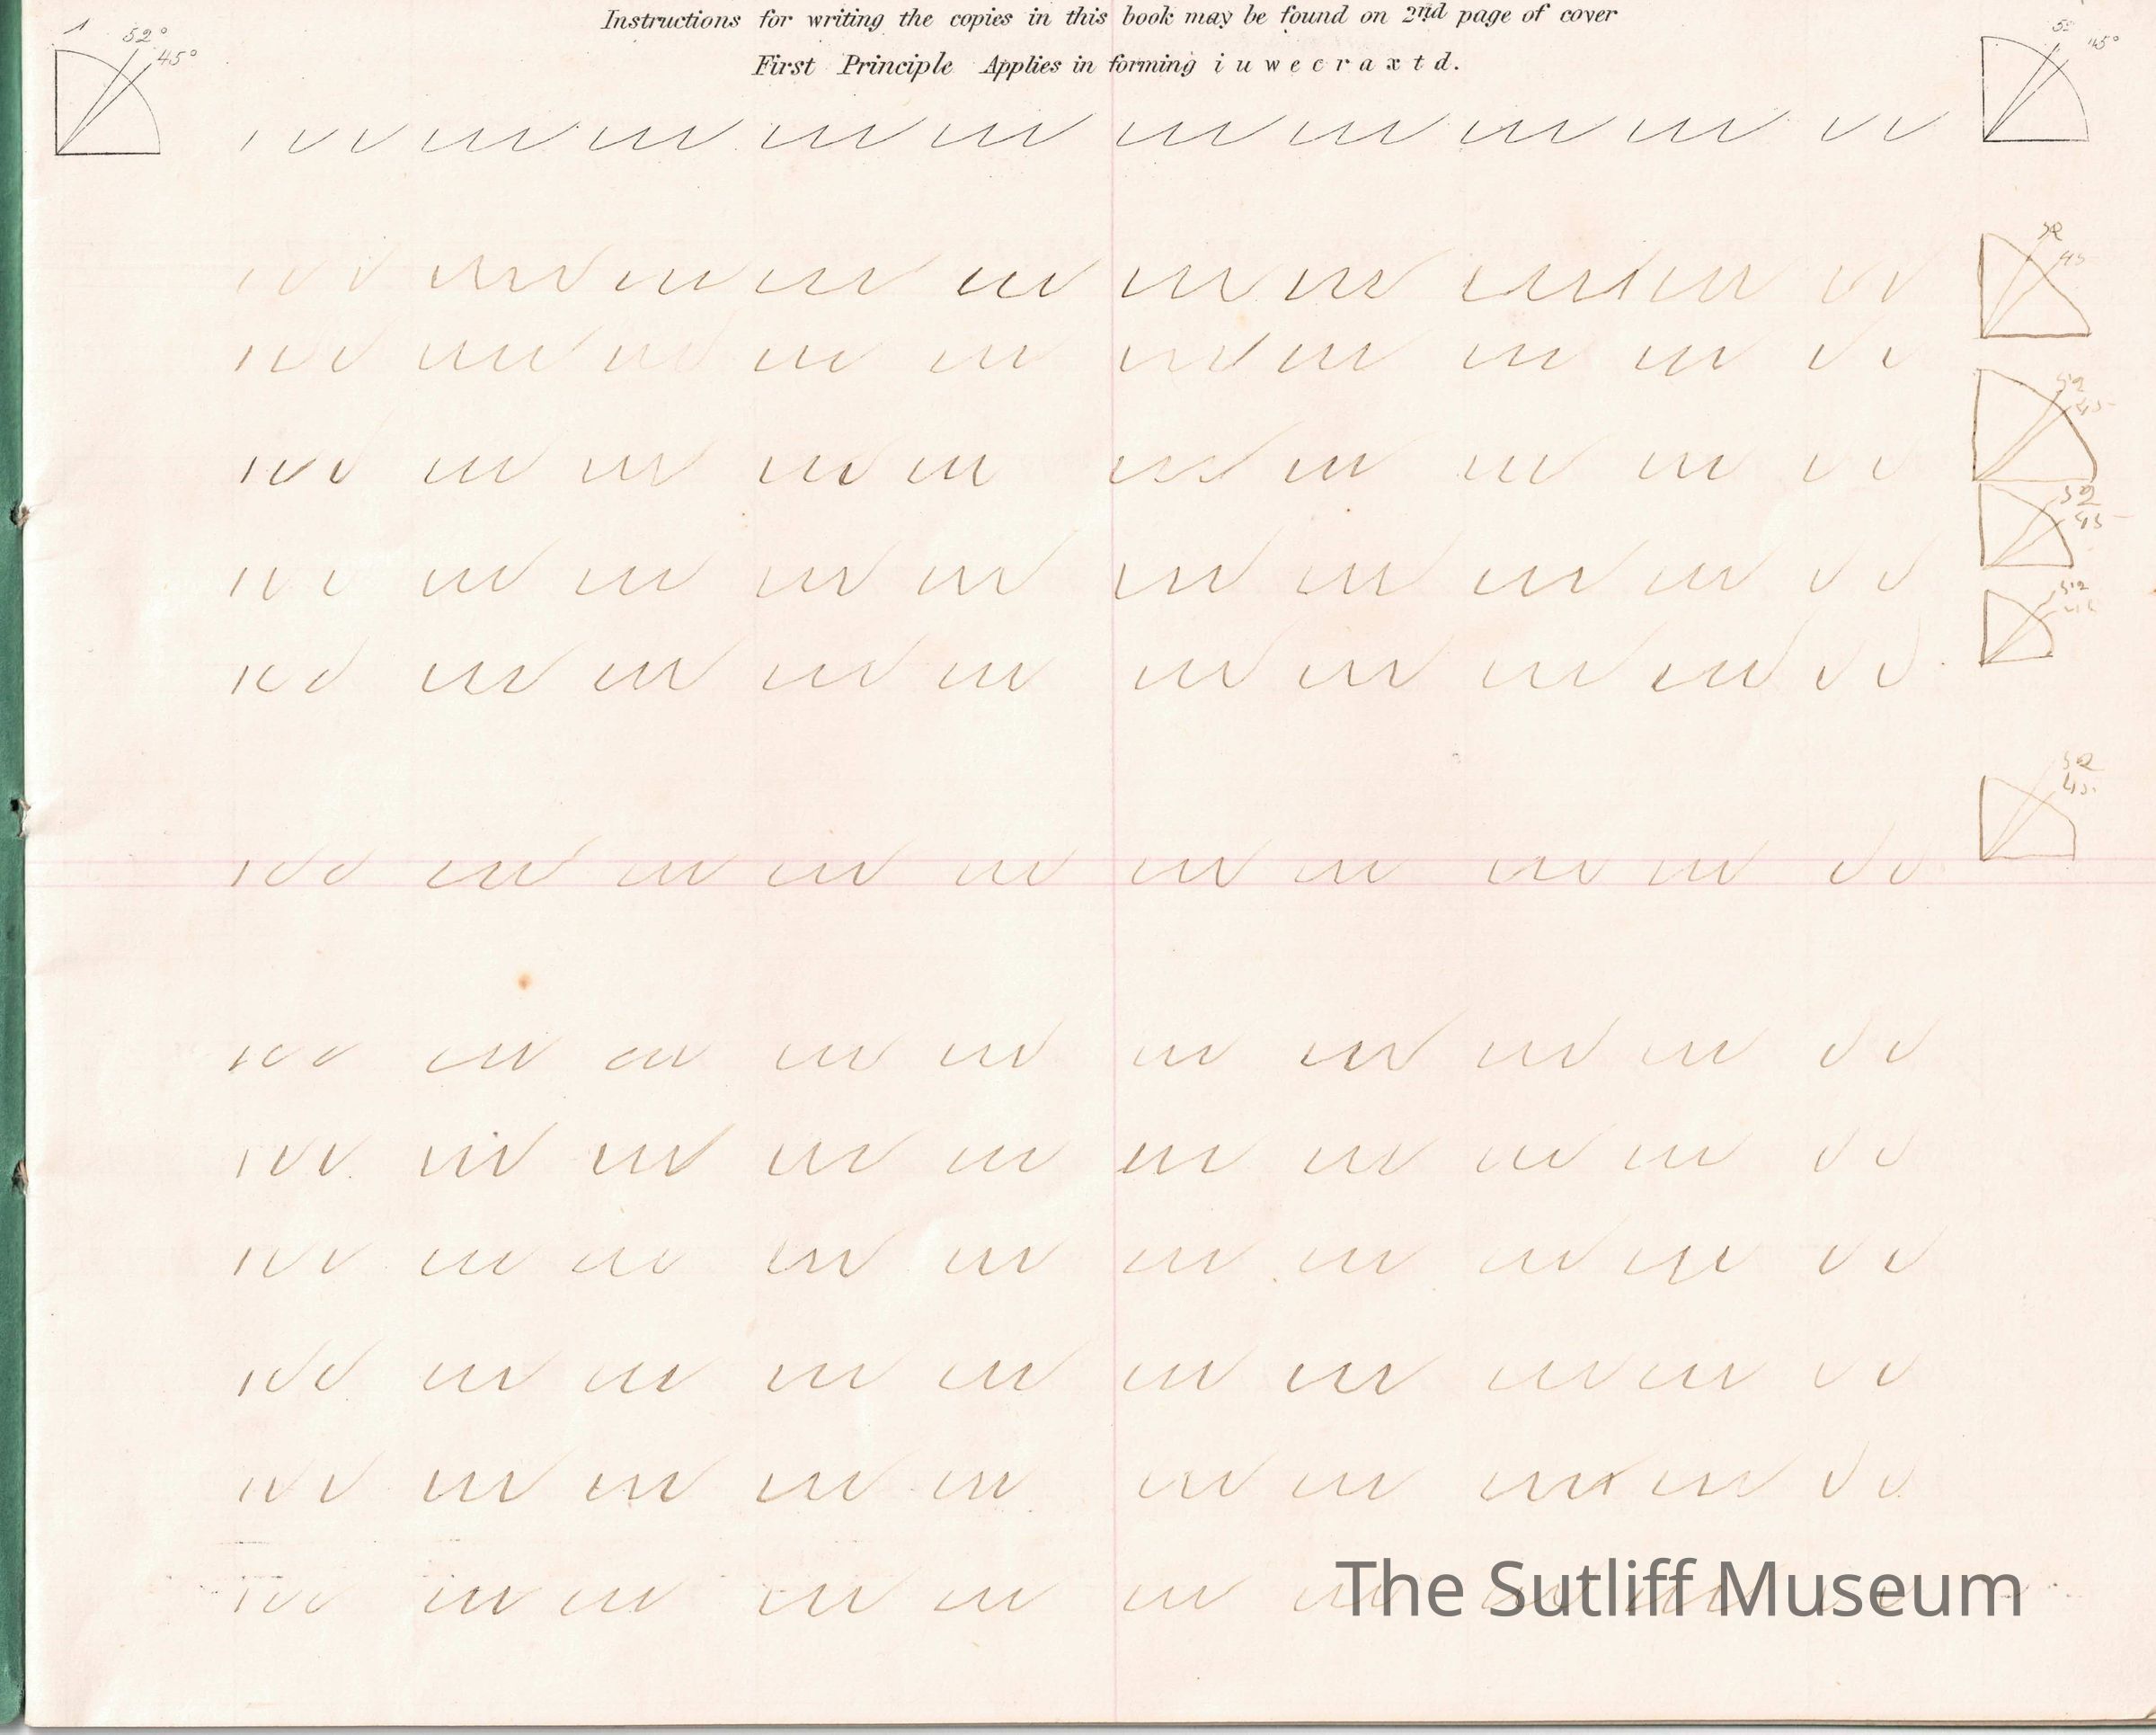 Instructions for writing the copies in this book may be found on 2nd page of cover
First Principle Applies in forming i u w e c r a x t d.
1 52° 45°
52 45°
52
45
52
45
52
45
52
45
52
45
The Sutliff Museum